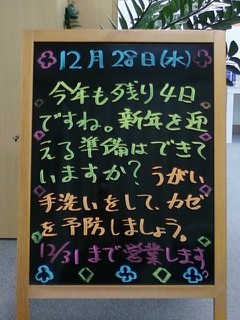 12月28日(水)
今年も残り4日
ですね。新年を迎
える準備はできて
いますか？うがい
手洗いをして、カゼ
を予防しましょう。
12/31まで営業します。